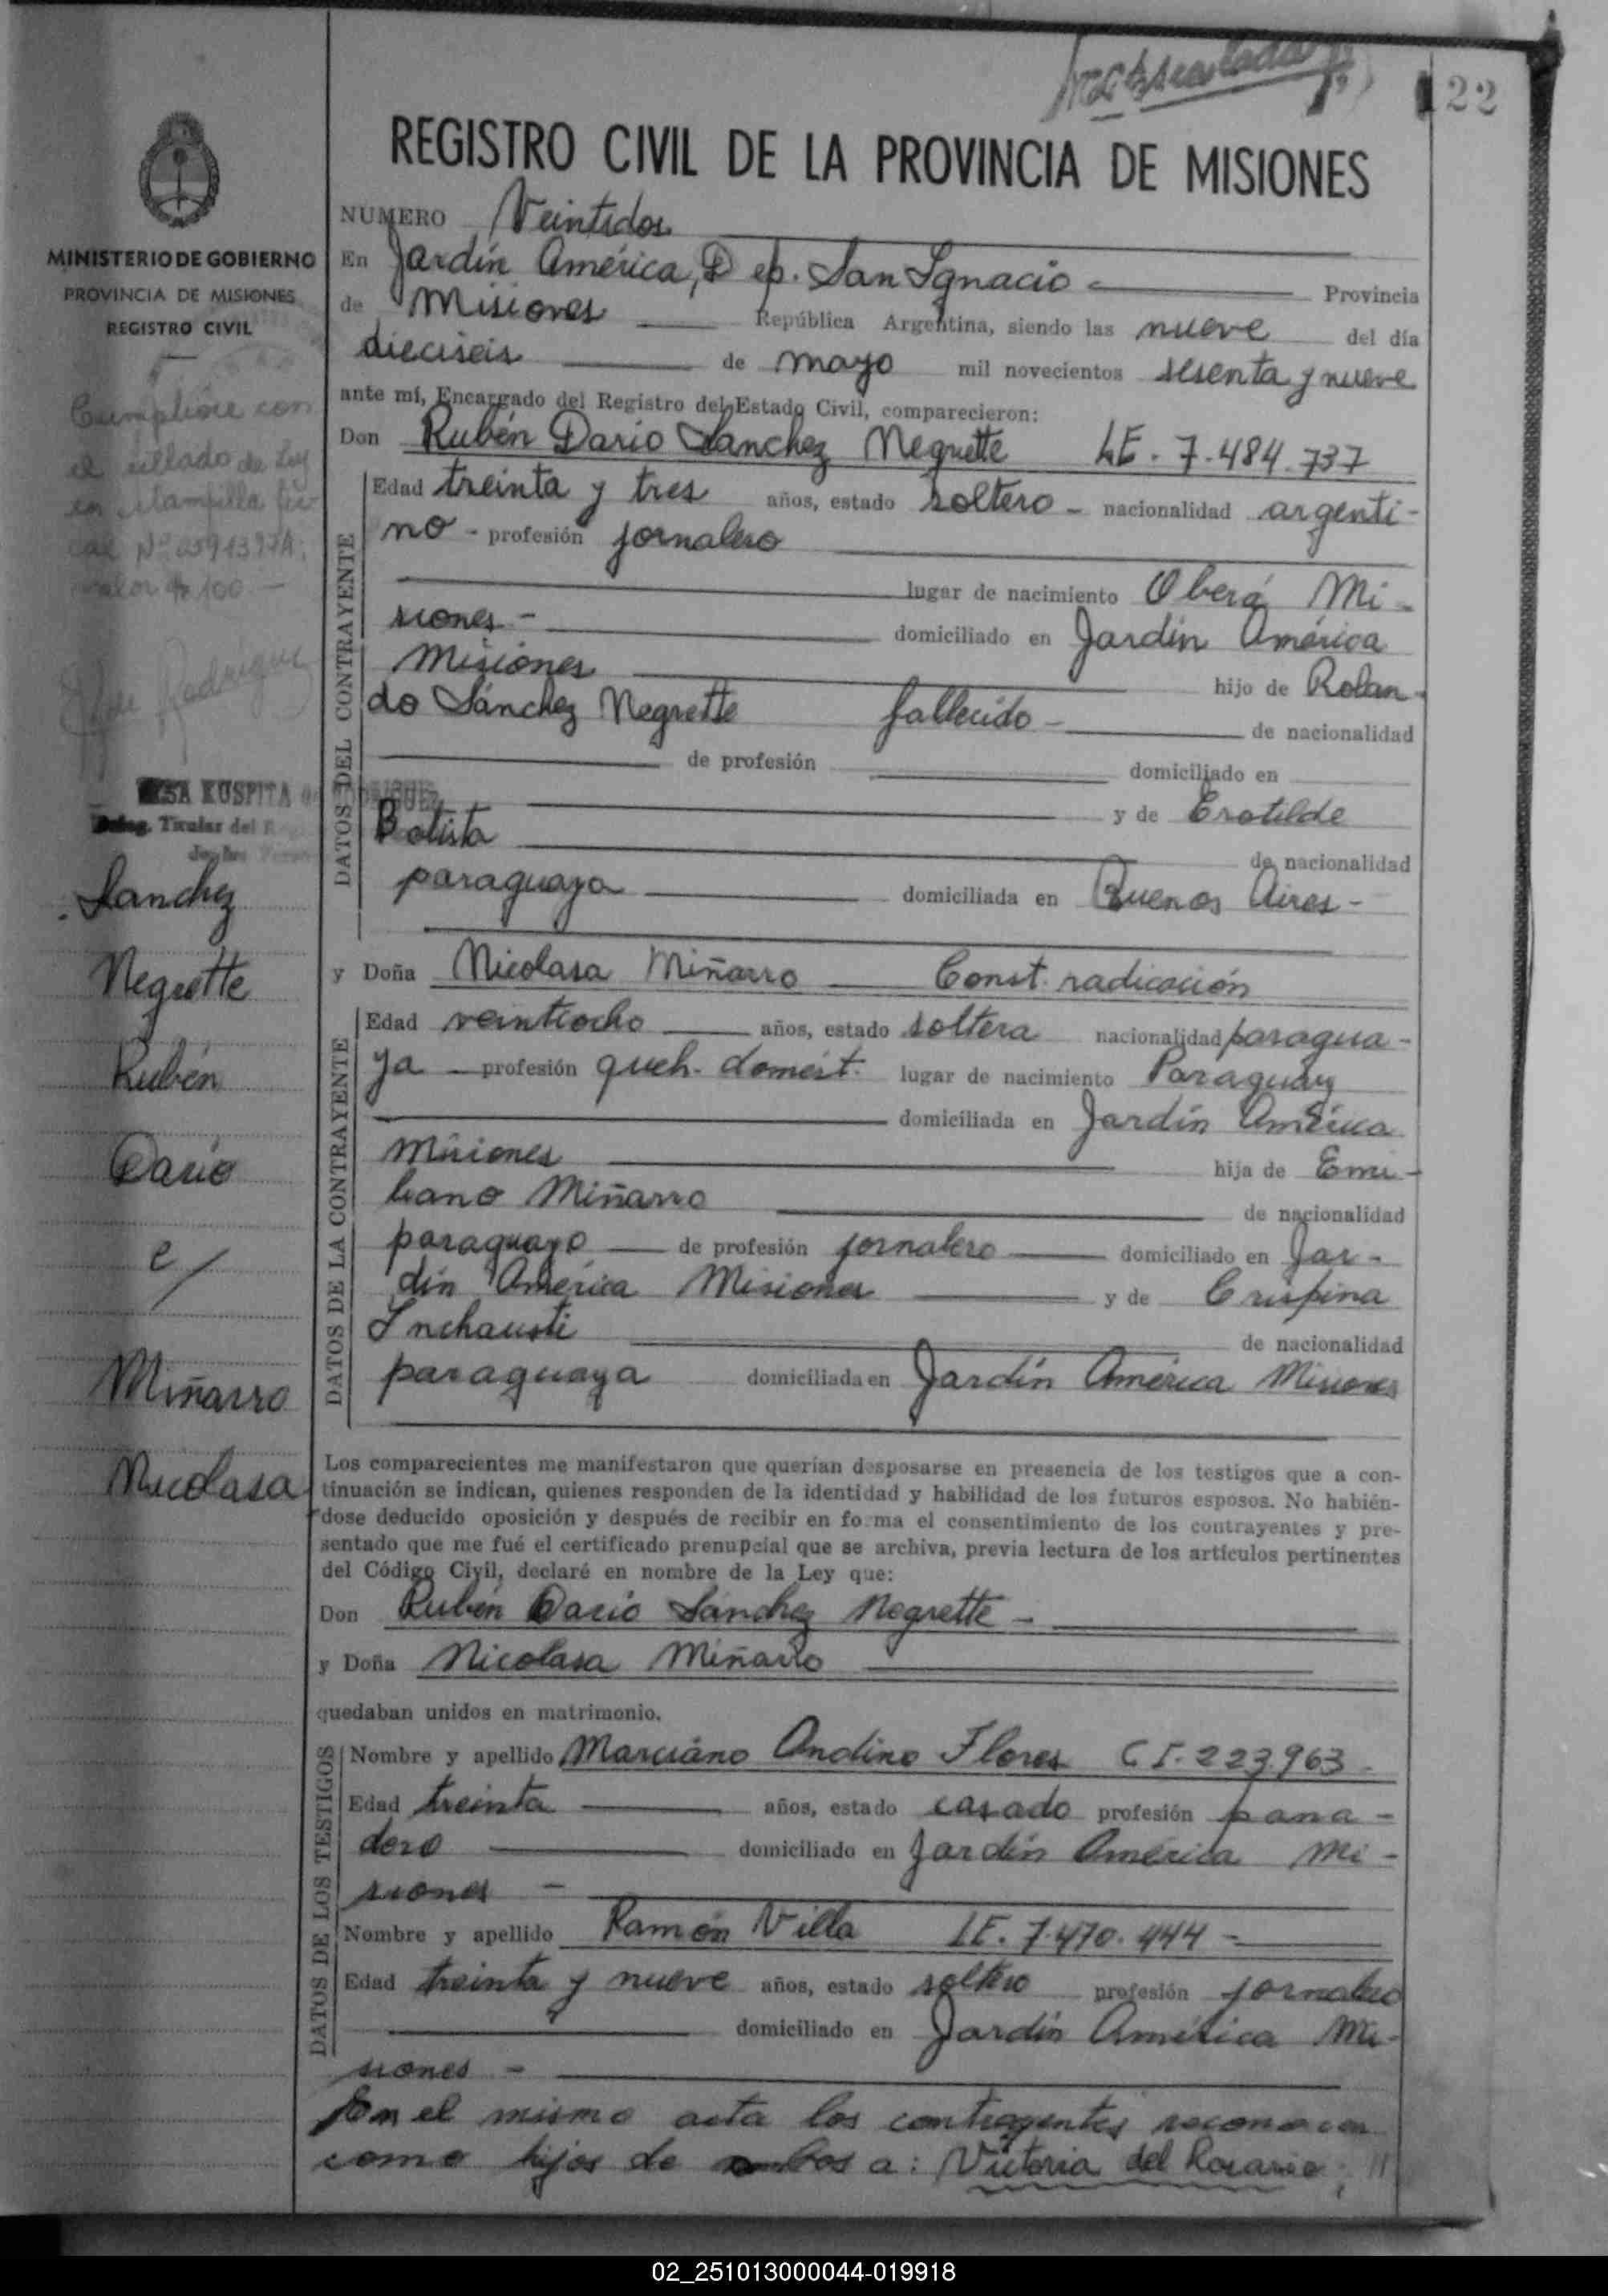 22
REGISTRO CIVIL DE LA PROVINCIA DE MISIONES
NUMERO Veintidos
En Jardín América, Dep. San Ignacio Provincia
de Misiones República Argentina, siendo las nueve del día
dieciseis de mayo mil novecientos sesenta y nueve
ante mí, Encargado del Registro del Estado Civil, comparecieron:
Don Rubén Dario Sanchez Negrette LE. 7.484.737
DATOS DEL CONTRAYENTE
Edad treinta y tres años, estado soltero - nacionalidad argenti-
no - profesión jornalero
lugar de nacimiento Oberá Mi-
siones - domiciliado en Jardín América
Misiones hijo de Rolan-
do Sánchez Negrette fallecido - de nacionalidad
de profesión domiciliado en
y de Erotilde
Batista de nacionalidad
paraguaya domiciliada en Buenos Aires -
y Doña Nicolasa Miñarro Const. radicación
DATOS DE LA CONTRAYENTE
Edad veintiocho años, estado soltera nacionalidad paragua-
ya - profesión queh. domést. lugar de nacimiento Paraguay
domiciliada en Jardín América
Misiones hija de Emi-
liano Miñarro de nacionalidad
paraguayo de profesión jornalero domiciliado en Jar-
dín América Misiones y de Crispina
Inchausti de nacionalidad
paraguaya domiciliada en Jardín América Misiones
Los comparecientes me manifestaron que querían desposarse en presencia de los testigos que a con-
tinuación se indican, quienes responden de la identidad y habilidad de los futuros esposos. No habién-
dose deducido oposición y después de recibir en forma el consentimiento de los contrayentes y pre-
sentado que me fué el certificado prenupcial que se archiva, previa lectura de los artículos pertinentes
del Código Civil, declaré en nombre de la Ley que:
Don Rubén Dario Sánchez Negrette -
y Doña Nicolasa Miñarro
quedaban unidos en matrimonio.
DATOS DE LOS TESTIGOS
Nombre y apellido Marciano Andino Flores C I. 223.963 -
Edad treinta años, estado casado profesión pana-
dero domiciliado en Jardín América Mi-
siones -
Nombre y apellido Ramón Villa LE. 7.470.444 -
Edad treinta y nueve años, estado soltero profesión jornalero
domiciliado en Jardín América Mi-
siones -
En el mismo acta los contrayentes reconocen
como hijos de ambos a: Victoria del Rosario; //
MINISTERIO DE GOBIERNO
PROVINCIA DE MISIONES
REGISTRO CIVIL
Cumplióse con
el sellado de Ley
en estampilla fis-
cal Nº 0591397A;
valor $ 100.-
KUSPITA
Titular del
Sanchez
Negrette
Rubén
Dario
c/
Miñarro
Nicolasa
02_251013000044-019918